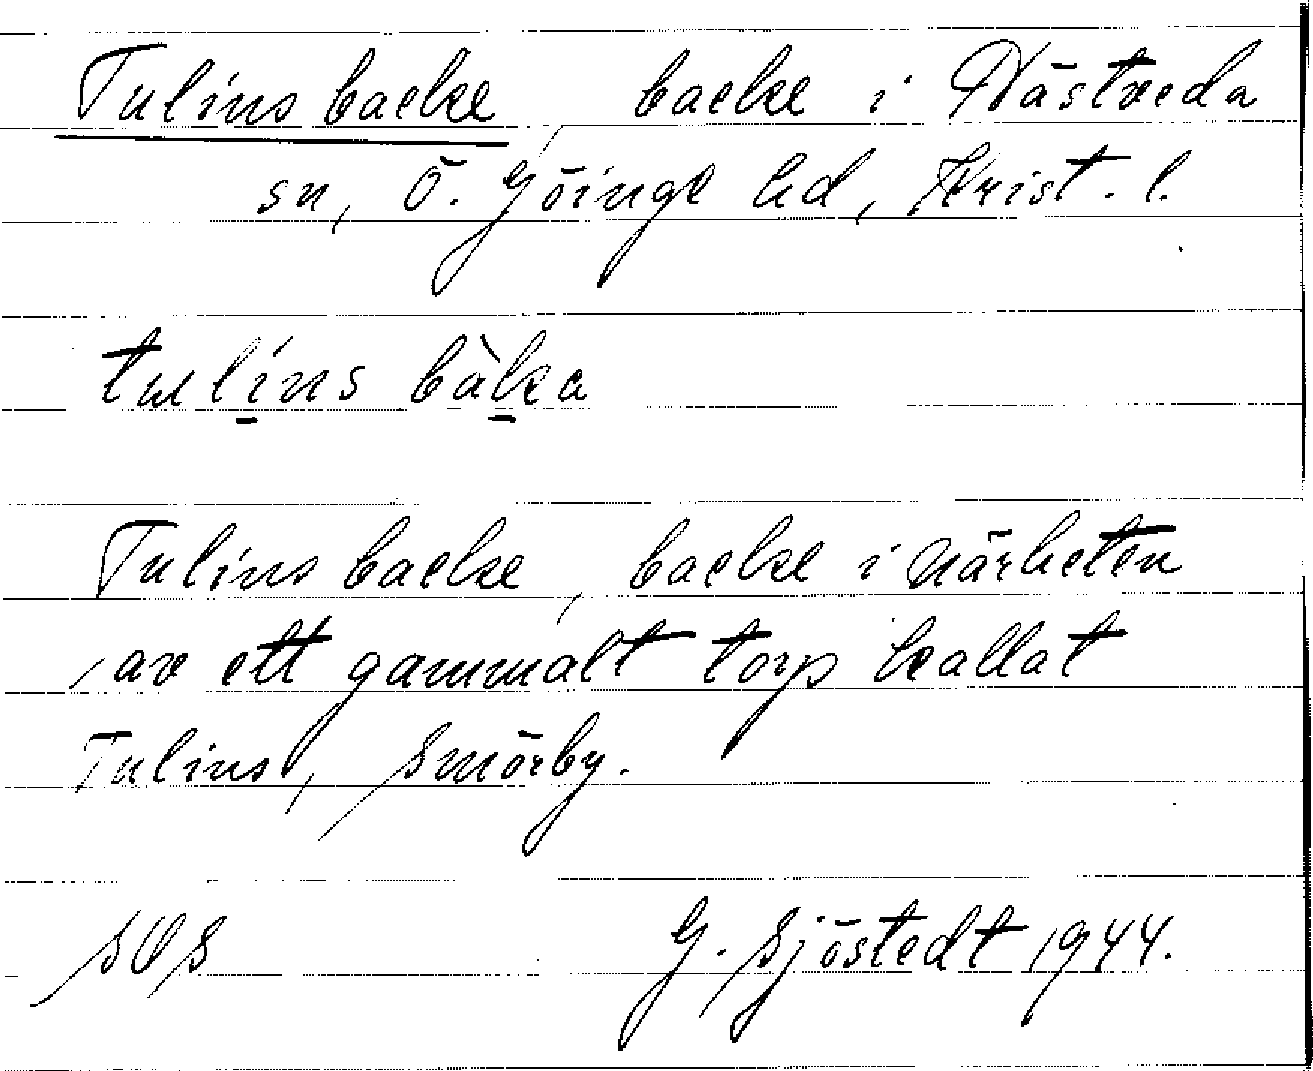 Tulins backe, backe i Hästveda
sn, Ö. Göinge hd, Krist. l.
tulíns bàka
Tulins backe, backe i närheten
av ett gammalt torp kallat
Tulins, Smörby.
G. Sjöstedt 1944.